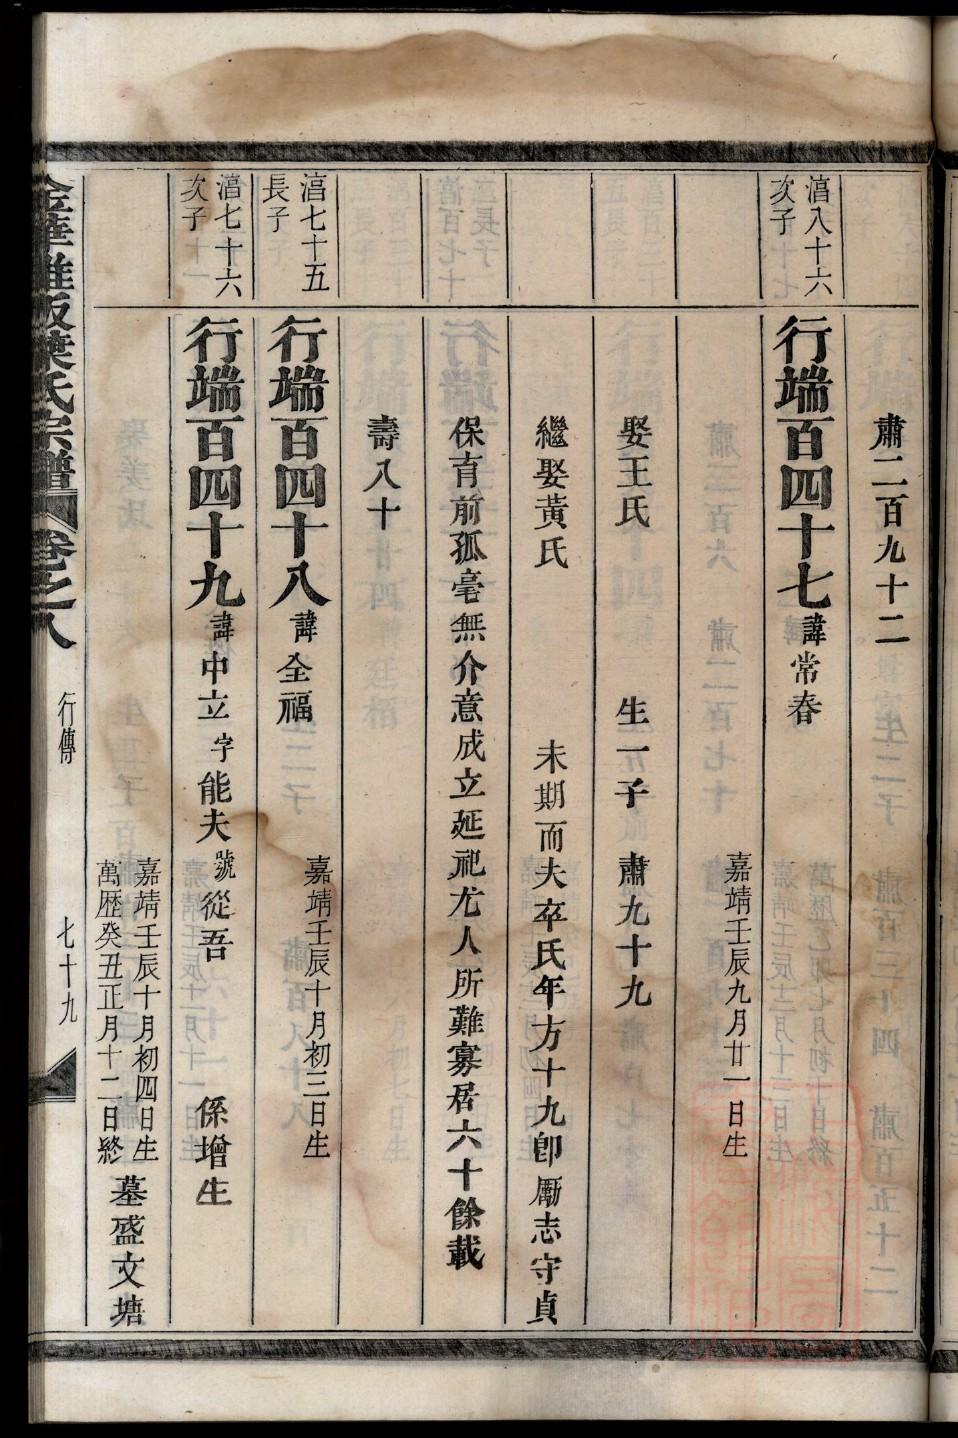 肅二百九十二
湻八十六
次子
行端百四十七諱常春
嘉靖壬辰九月廿一日生
娶王氏 生一子 肅九十九
繼娶黃氏 未期而夫卒氏年方十九卽勵志守貞
保育前孤毫無介意成立延祀尤人所難寡居六十餘載
壽八十
湻七十五
長子
行端百四十八諱全福
嘉靖壬辰十月初三日生
湻七十六
次子
行端百四十九諱中立字能夫號從吾 係增生
嘉靖壬辰十月初四日生
萬歷癸丑正月十二日終
墓盛文塘
葉氏宗譜 卷之八 行傳 七十九